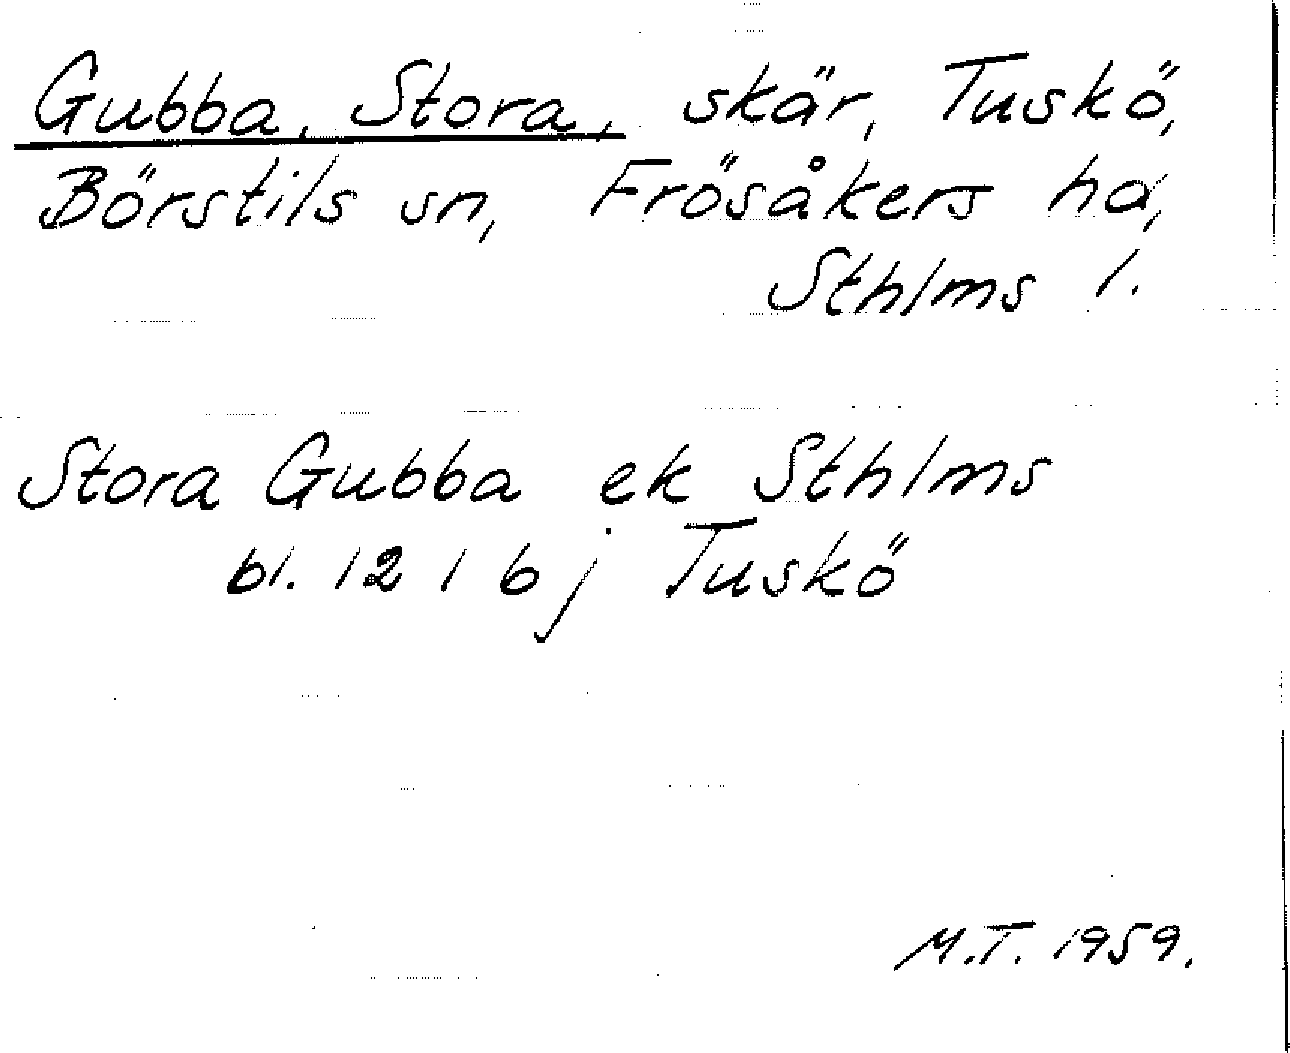 Gubba, Stora, skär, Tuskö,
Börstils sn, Frösåkers hd,
Sthlms l.
Stora Gubba ek Sthlms
bl. 12 1 b j Tuskö
M.T. 1959.